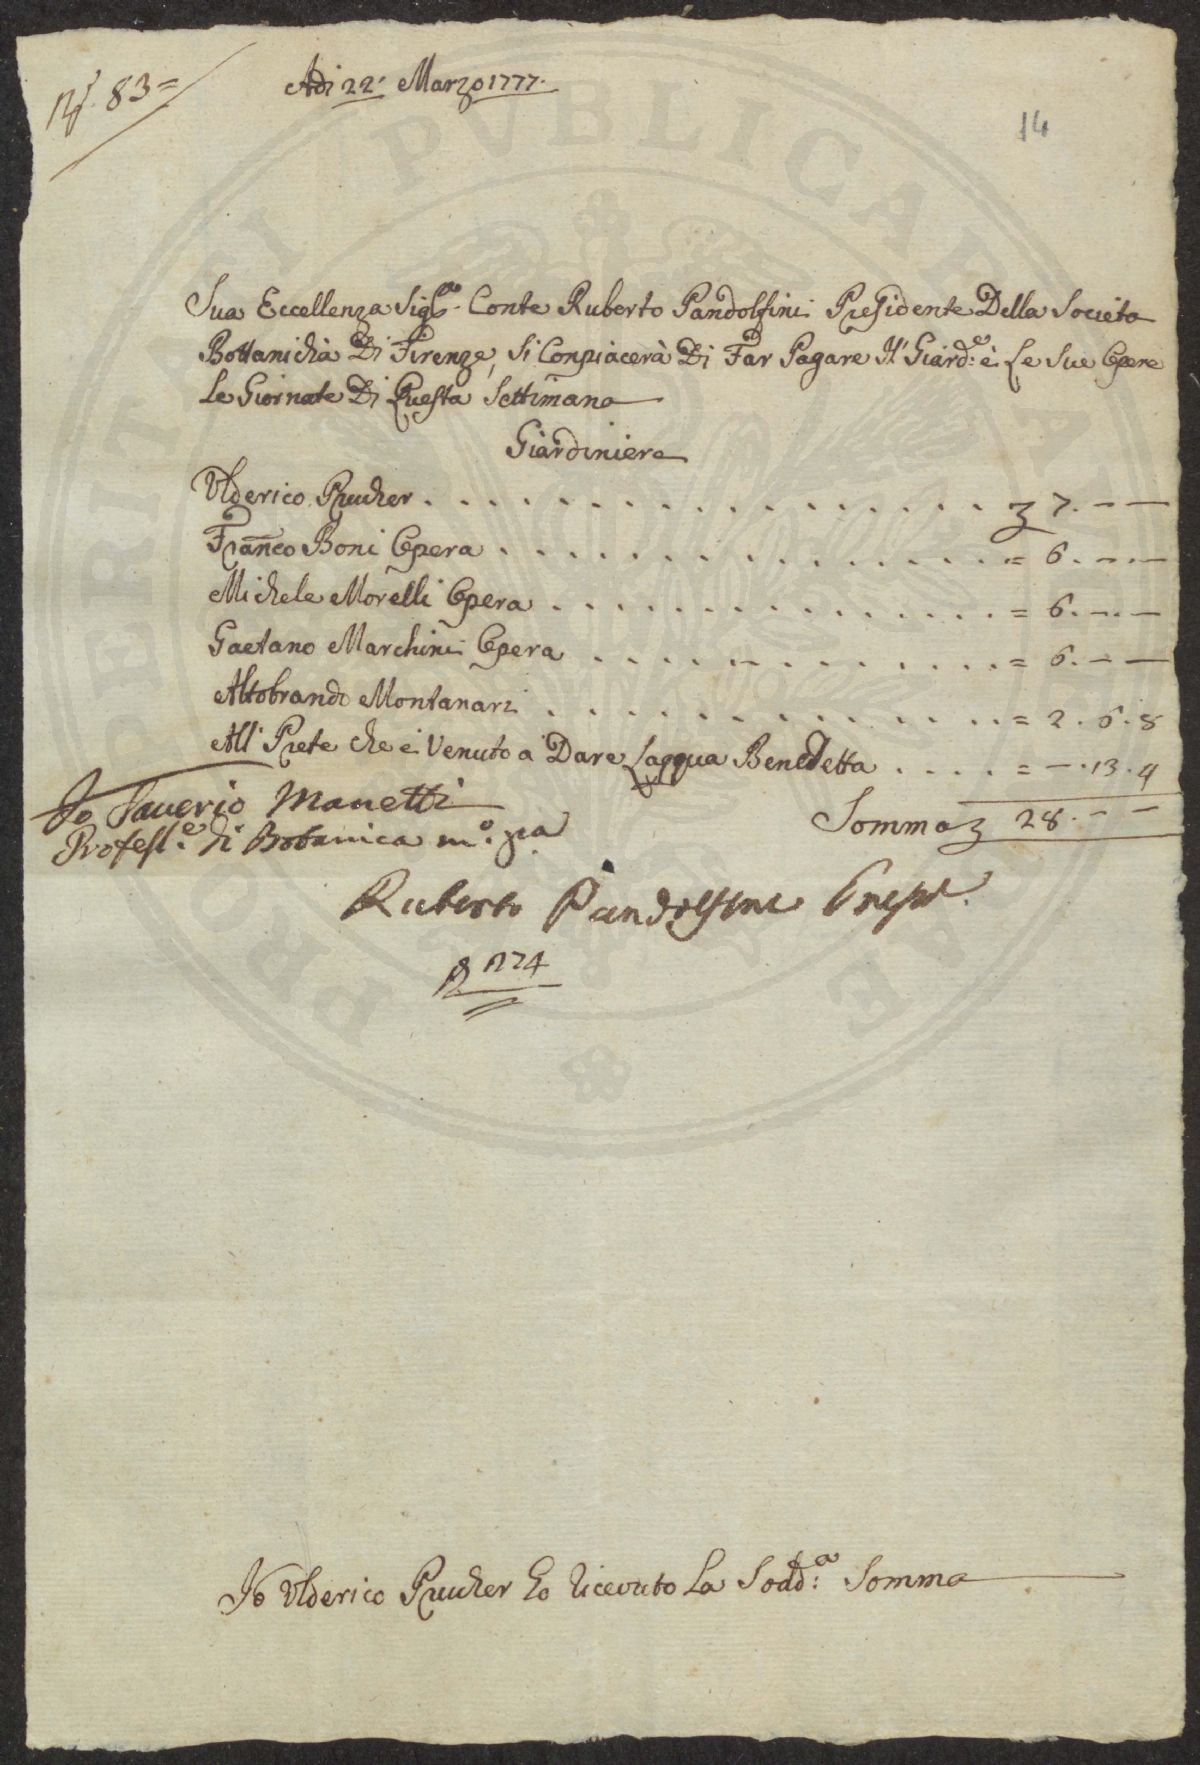 N.° 83=
Adi 22: Marzo 1777.
14
Sua Eccellenza Sigre. Conte Ruberto Pandolfini Presidente Della Societa
Bottanichà Di Firenze, Si Conpiacerà Di Far Pagare Il Giard:e è Le Sue Opere
Le Giornate Di Questa Settimana
Giardiniere
Ulderico Prucher . . . . . . . . . . . . . . . . . . £ 7. - -
Franco Boni Opera . . . . . . . . . . . . . . . = 6. - -
Michele Morelli Opera . . . . . . . . . . . . . . = 6. - -
Gaetano Marchini Opera . . . . . . . . . . . . . = 6. - -
Altobrando Montanari . . . . . . . . . . . . . = 2. 6. 8
All' Prete che è Venuto a Dare Lacqua Benedetta . . . . = -. 13. 4
Somma £ 28. - -
Io Saverio Manetti
Profess.e di Botanica m.o pia
Ruberto Pandolfini Presid.
274
Io Ulderico Prucher ho ricevuto La Sodd:a Somma
PROSPERITATI PUBLICAE